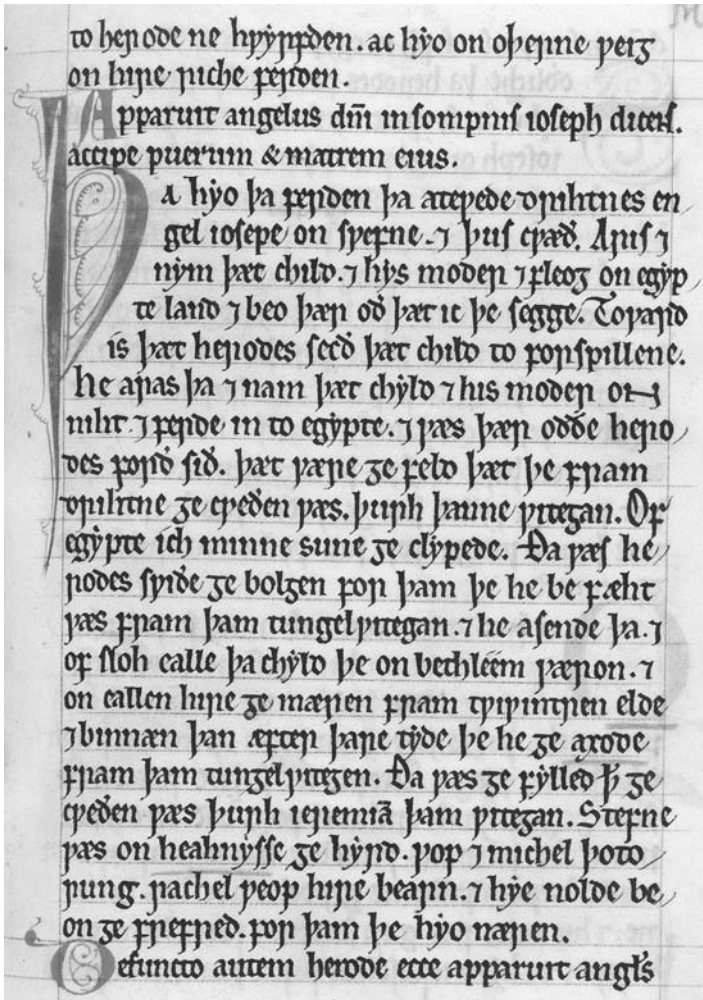 to herode ne hƿyrfden. ac hyo on oþerne ƿeig
on hire riche ferden.
Apparuit angelus dn̄i in sompnis ioseph dicens.
accipe puerum & matrem eius.
Þa hyo þa ferden þa ateƿede drihtnes en
gel iosepe on sƿefne. ⁊ þus cƿæð. Aris ⁊
nym þæt child. ⁊ hys moder ⁊ fleog on egyp
te land ⁊ beo þær oð þæt ic þe segge. Toƿard
is þæt herodes secð þæt child to forspillene.
he aras þa ⁊ nam þæt chyld ⁊ his moder on
niht. ⁊ ferde in to egypte. ⁊ ƿæs þær oððe hero
des forð sið. þæt ƿære ge feld þæt þe fram
drihtne ge cƿeðen ƿæs. þurh þanne ƿitegan. Of
egypte ich minne sune ge clypede. Ða ƿæs he
rodes sƿiðe ge bolgen for þam þe he be fæht
ƿæs fram þam tungelƿitegan. ⁊ he asende þa. ⁊
of sloh ealle þa chyld þe on bethleēm ƿæron. ⁊
on eallen hire ge mæren fram tƿiƿintren elde
⁊ binnæn þan æfter þare tyde þe he ge axode
fram þam tungelƿitegen. Ða ƿæs ge fylled ꝥ ge
cƿeðen ƿæs þurh ieremiā þam ƿitegan. Stefne
ƿæs on heahnysse ge hyrd. ƿop ⁊ michel þoto
rung. rachel ƿeop hire bearn. ⁊ hye nolde be
on ge frefred. for þam þe hyo næren.
Defuncto autem herode ecce apparuit angl̄s